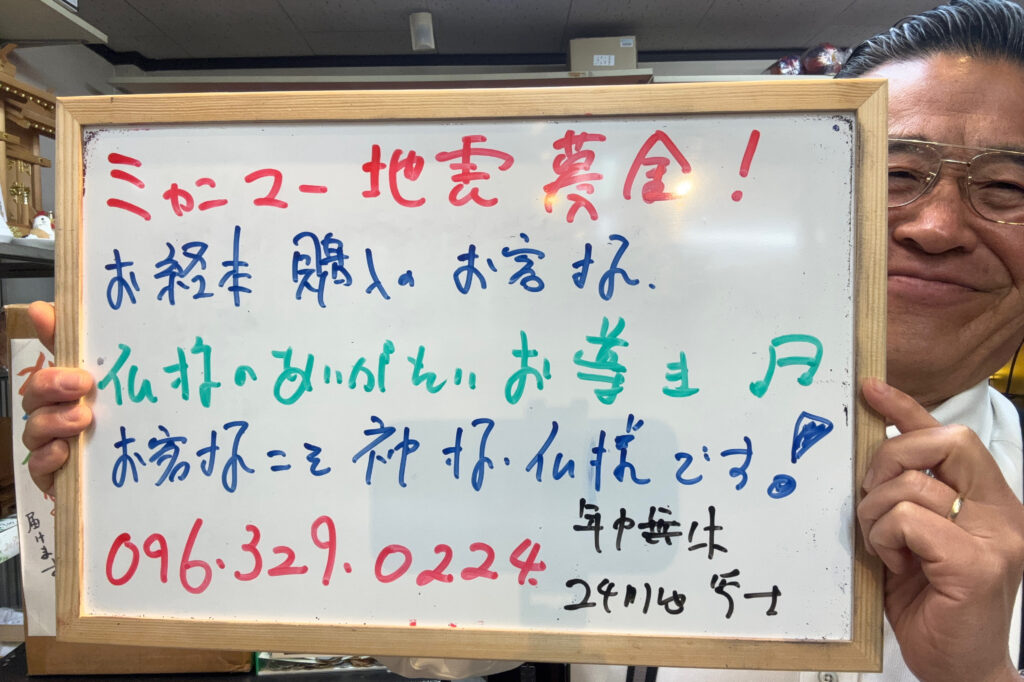 ミャンマー地震 募金!
お経本 購入の お客様.
仏様の ありがたい お導き
お客様こそ 神様・仏様です!
096.329.0224
年中無休
24
届けます